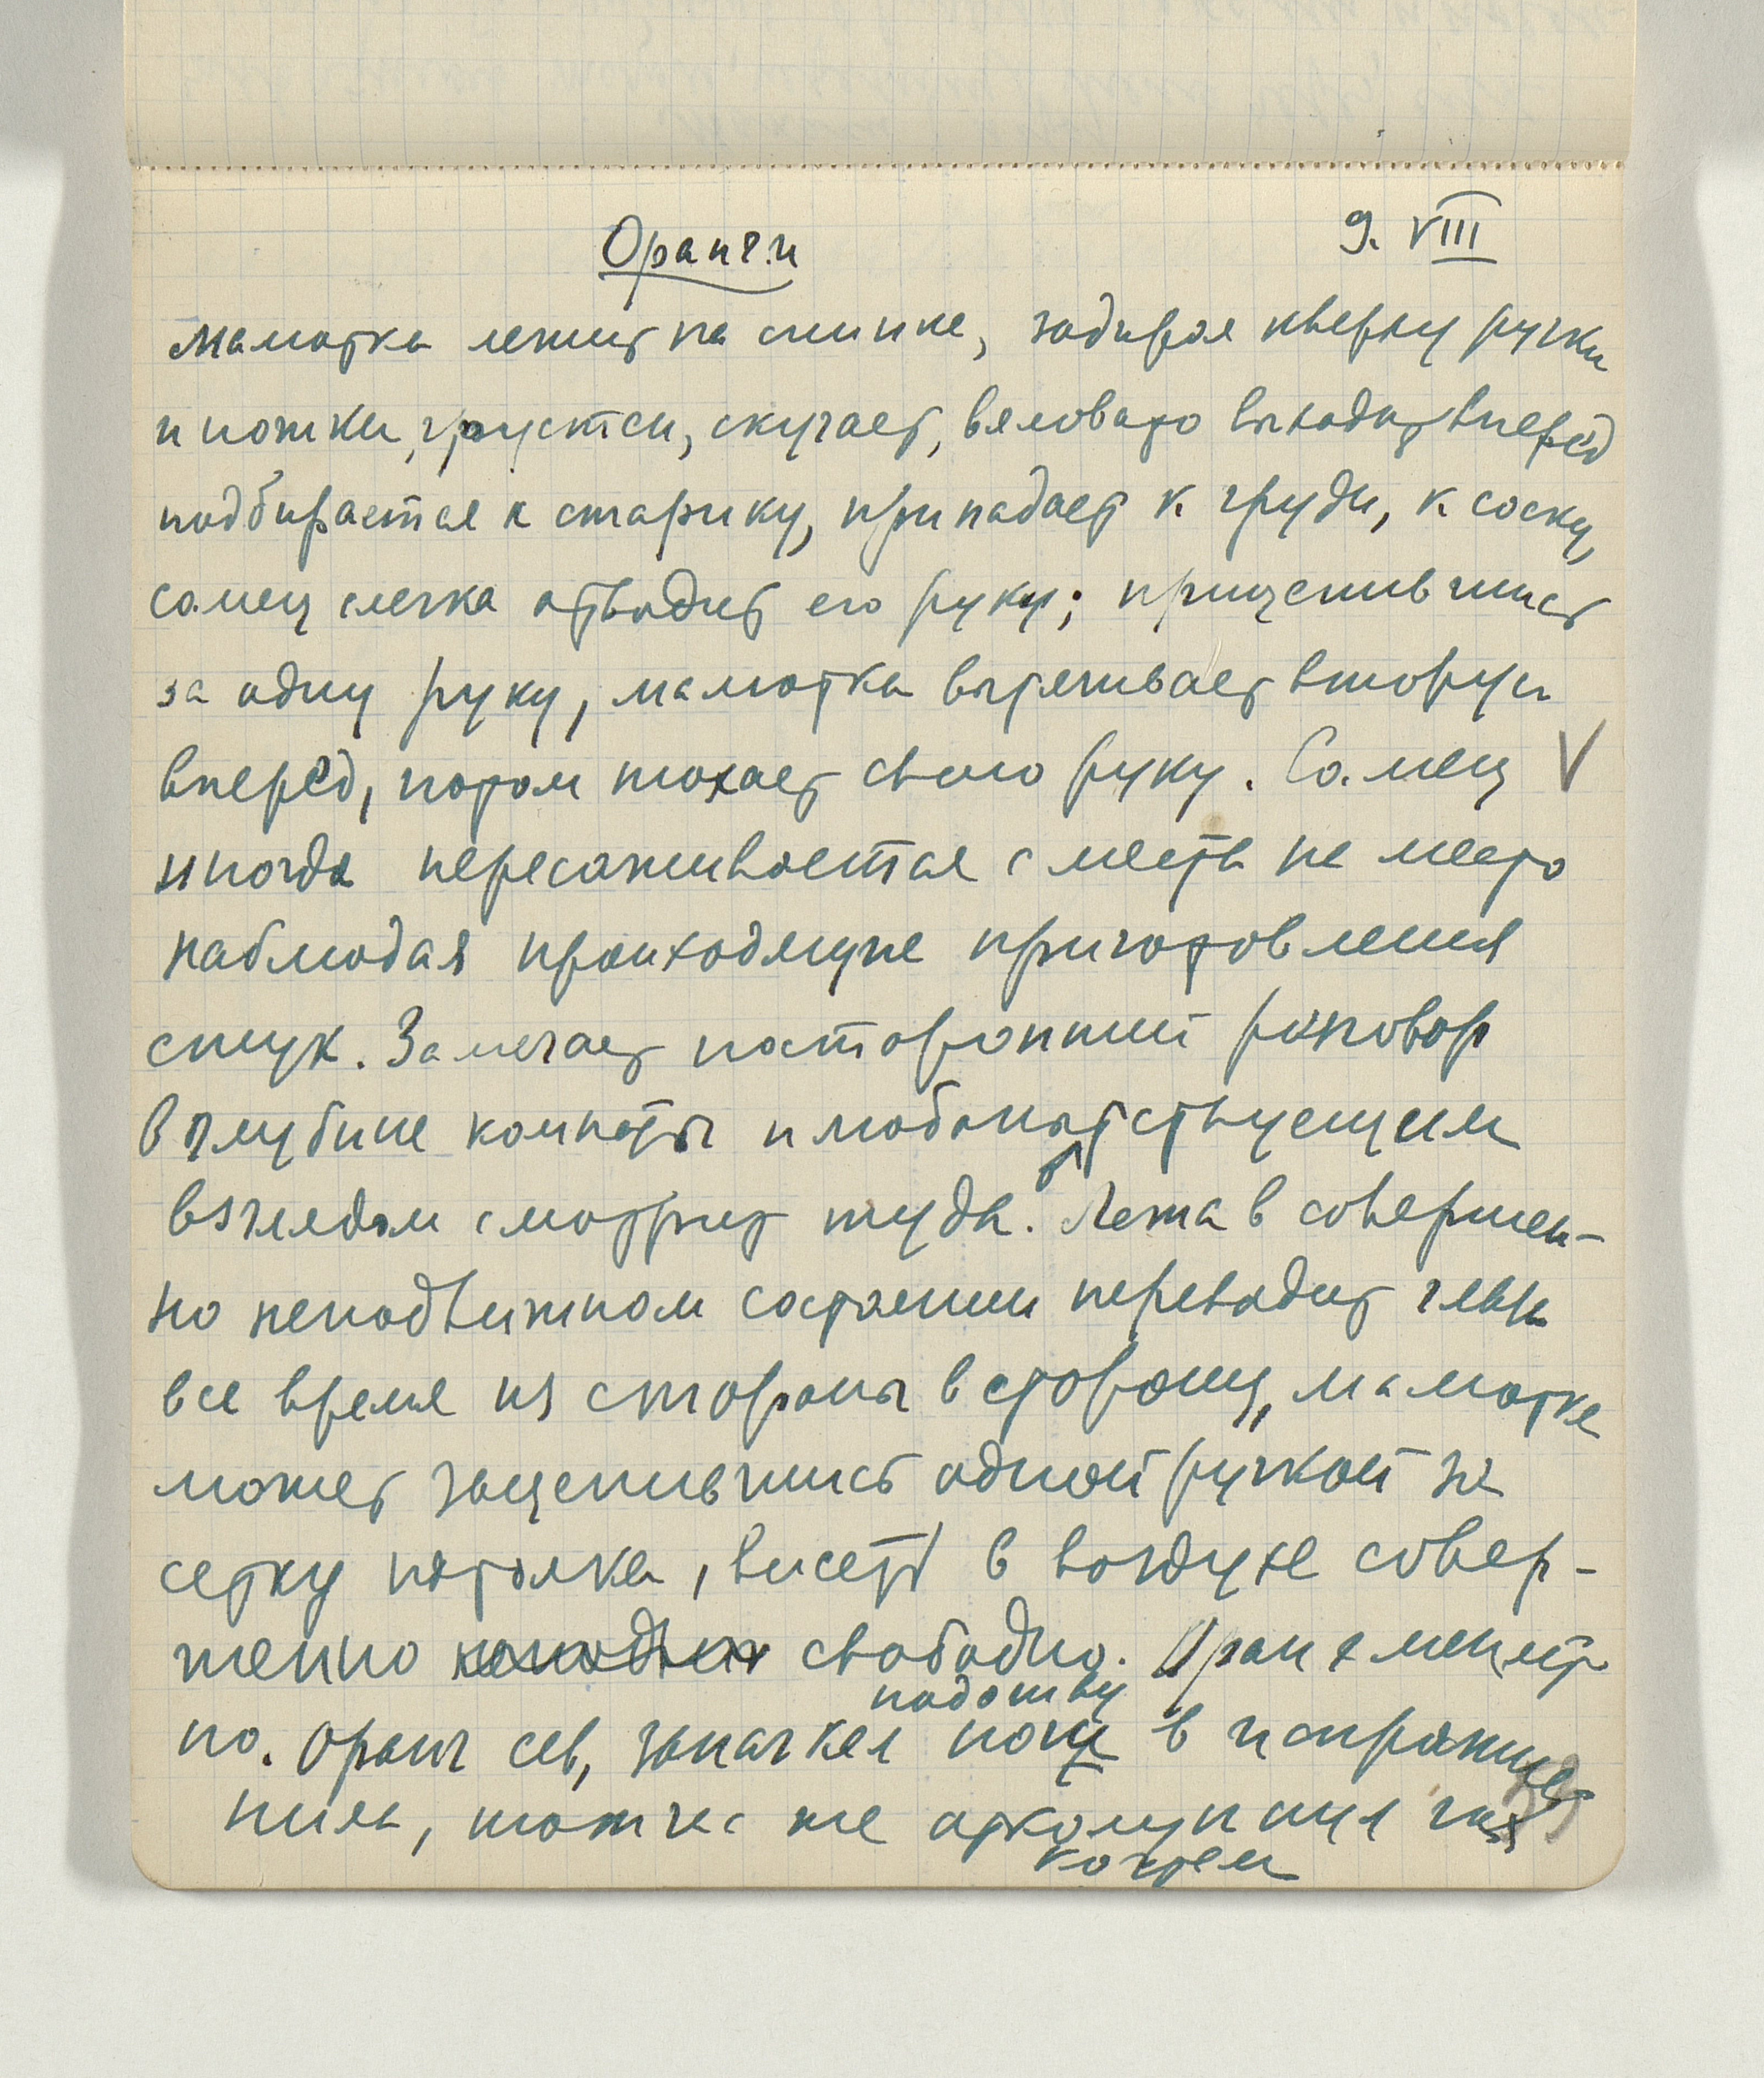 Оранги 9. VIII
малютка лежит на спинке, задирая кверху ручки
и ножки, грустен, скучает, вяловато выходит вперёд
подбирается к старику, припадает к груди, к соску,
самец слегка отводит его руку; прицепившись
за одну руку, малютка вытягивает вторую
вперёд, потом толкает свою руку. Самец V
иногда пересаживается с места на место
наблюдая происходящие приготовления
стук. Замечает посторонний разговор
в глубине комнаты и любопытствующим
взглядом смотрит туда. Лежа в совершен-
но неподвижном состоянии переводит глаза
все время из стороны в сторону, малютка
может зацепившись одной ручкой за
сетку потолка, висеть в воздухе совер-
шенно свободно.
подошву
но. Оранг сев, запачкал ноги в испражне
ниях, тотчас же отколупнул
когтем